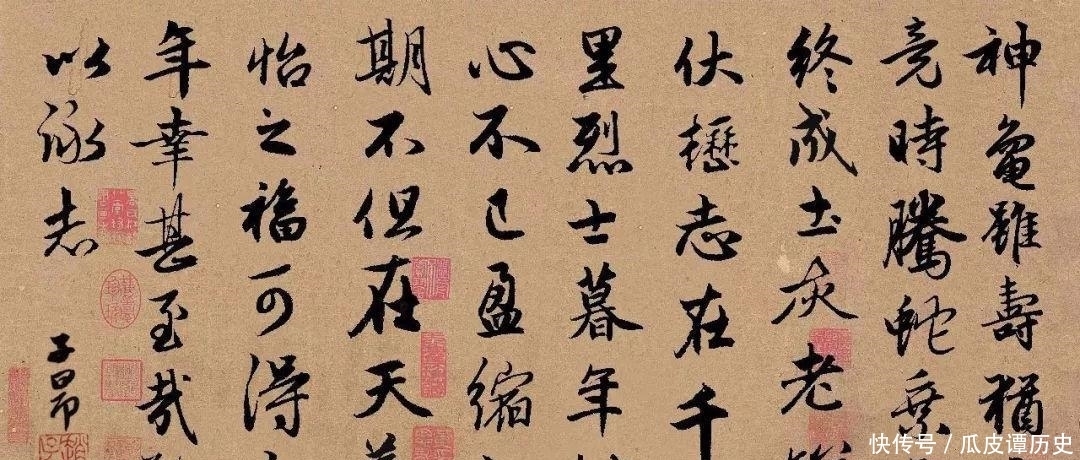 神龜雖壽猶
竟時騰蛇乘
終成土灰老
伏櫪志在千
里烈士暮年
心不已盈縮
期不但在天
怡之福可得
年幸甚至哉
以詠志
子昂
快传号 / 瓜皮谭历史